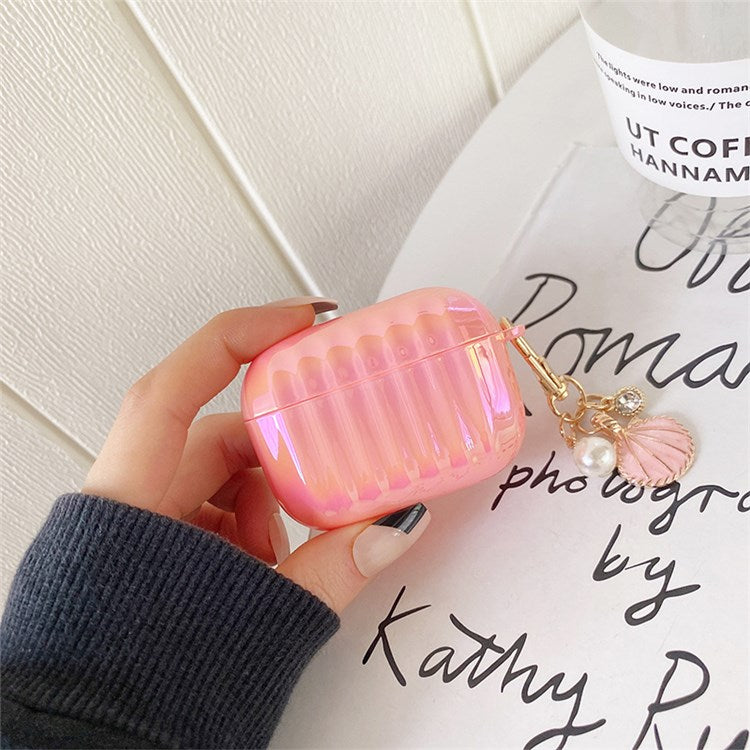 The lights were low and roman
speaking in low voices./ The
UT COFF
HANNAM
Off
Romance
photogra
by
Kathy R